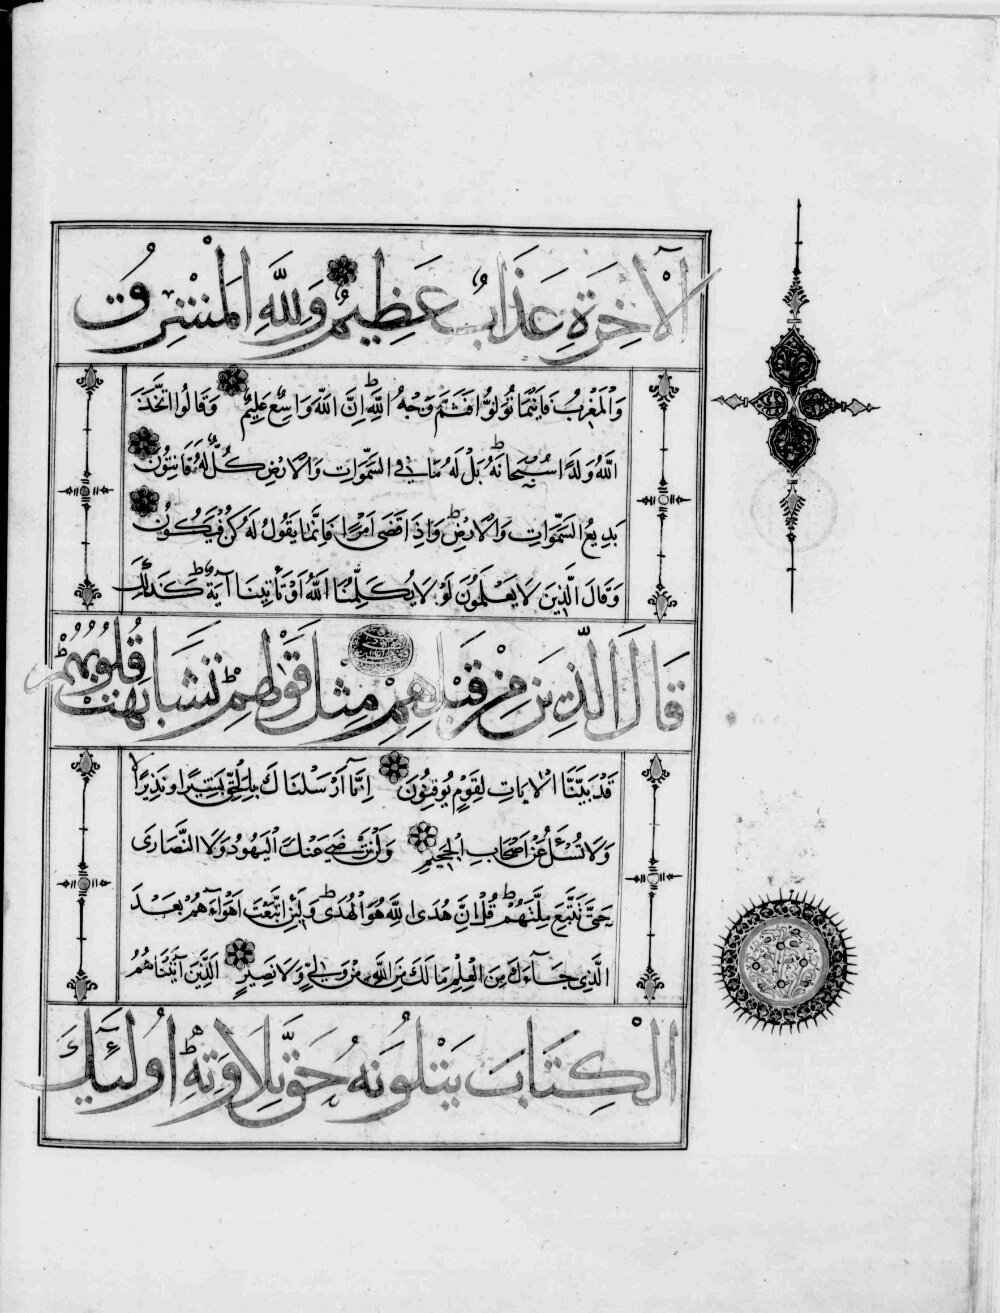 الْآخِرَةِ عَذَابٌ عَظِيمٌ وَلِلَّهِ الْمَشْرِقُ
وَالْمَغْرِبُ فَأَيْنَمَا تُوَلُّوا فَثَمَّ وَجْهُ اللَّهِ إِنَّ اللَّهَ وَاسِعٌ عَلِيمٌ وَقَالُوا اتَّخَذَ
اللَّهُ وَلَدًا سُبْحَانَهُ بَلْ لَهُ مَا فِي السَّمَوَاتِ وَالْأَرْضِ كُلٌّ لَهُ قَانِتُونَ
بَدِيعُ السَّمَوَاتِ وَالْأَرْضِ وَإِذَا قَضَى أَمْرًا فَإِنَّمَا يَقُولُ لَهُ كُنْ فَيَكُونُ
وَقَالَ الَّذِينَ لَا يَعْلَمُونَ لَوْلَا يُكَلِّمُنَا اللَّهُ أَوْ تَأْتِينَا آيَةٌ كَذَلِكَ
قَالَ الَّذِينَ مِنْ قَبْلِهِمْ مِثْلَ قَوْلِهِمْ تَشَابَهَتْ قُلُوبُهُمْ
قَدْ بَيَّنَّا الْآيَاتِ لِقَوْمٍ يُوقِنُونَ إِنَّا أَرْسَلْنَاكَ بِالْحَقِّ بَشِيرًا وَنَذِيرًا
وَلَا تُسْئَلُ عَنْ أَصْحَابِ الْجَحِيمِ وَلَنْ تَرْضَى عَنْكَ الْيَهُودُ وَلَا النَّصَارَى
حَتَّى تَتَّبِعَ مِلَّتَهُمْ قُلْ إِنَّ هُدَى اللَّهِ هُوَ الْهُدَى وَلَئِنِ اتَّبَعْتَ أَهْوَاءَهُمْ بَعْدَ
الَّذِي جَاءَكَ مِنَ الْعِلْمِ مَا لَكَ مِنَ اللَّهِ مِنْ وَلِيٍّ وَلَا نَصِيرٍ الَّذِينَ آتَيْنَاهُمُ
الْكِتَابَ يَتْلُونَهُ حَقَّ تِلَاوَتِهِ أُولَئِكَ